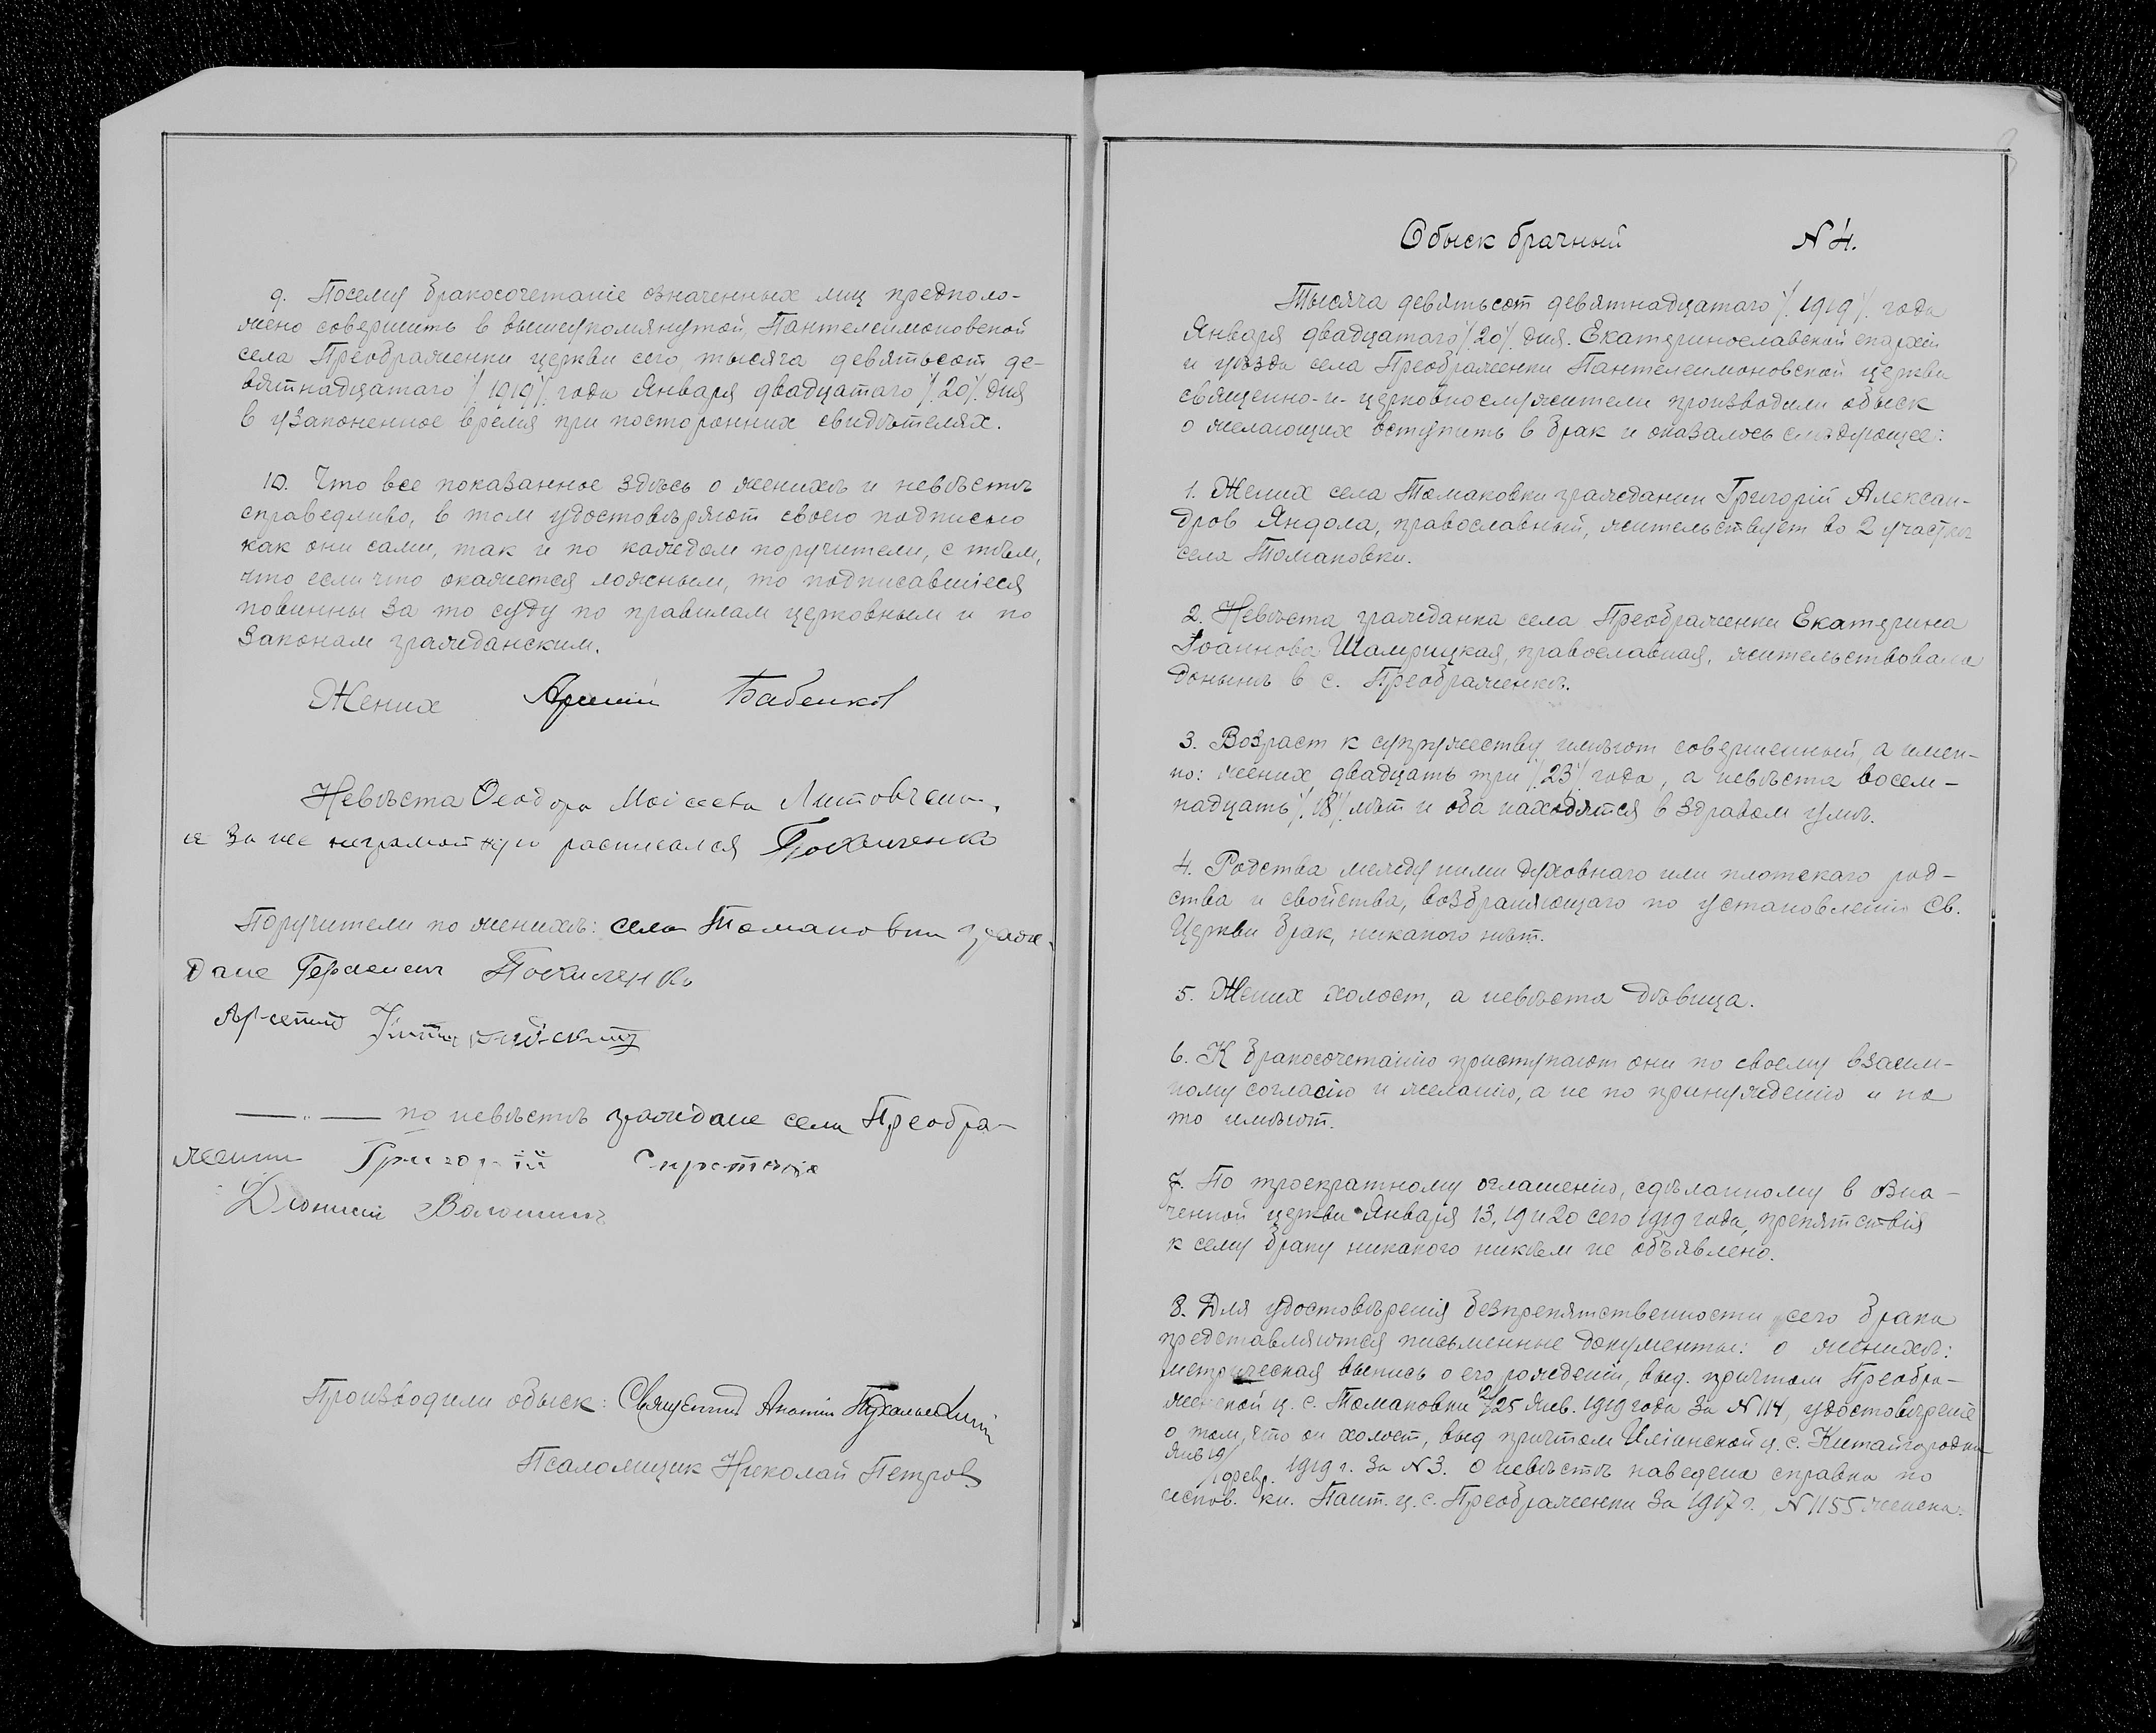 9. Посему бракосочетаніе означенных лиц предполо-
жено совершить в вышеупомянутой Пантелеимоновской
села Преображенки церкви сего тысяча девятьсот де-
вятнадцатаго /1919/ года Января двадцатаго /20/ дня
в узаконенное время при посторонних свидѣтелях.
10. Что все показанное здѣсь о женихѣ и невѣстѣ
справедливо, в том удостовѣряют своею подписью
как они сами, так и по каждом поручители, с тѣм,
что если что окажется ложным, то подписавшіеся
повинны за то суду по правилам церковным и по
законам гражданским.
Жених Бабенков
Невѣста Ѳеодора Моисеева Литовченко,
а за нее неграмотную расписался
Поручители по женихѣ: села Томаковки граж-
дане
Арсений
—„— по невѣстѣ граждане села Преобра-
женки Григорій
Дионисий Волошин
Производили обыск: Священник
Псаломщик Николай Петров
Обыск брачный N 4.
Тысяча девятьсот девятнадцатаго /1919/ года
Января двадцатаго /20/ дня. Екатеринославской епархіи
и уѣзда села Преображенки Пантелеимоновской церкви
священно-и-церковнослужители производили обыск
о желающих вступить в брак и оказалось слѣдующее:
1. Жених села Томаковки гражданин Григорій Алексан-
дров Яндола, православный, жительствует во 2 участкѣ
села Томаковки.
2. Невѣста гражданка села Преображенки Екатерина
Іоаннова Шамрицкая, православная, жительствовала
донынѣ в с. Преображенкѣ.
3. Возраст к супружеству имѣют совершенный, а имен-
но: жених двадцать три /23/ года, а невѣста восем-
надцать /18/ лѣт и оба находятся в здравом умѣ.
4. Родства между ними духовнаго или плотскаго род-
ства и свойства, возбраняющаго по установленію Св.
Церкви брак, никакого нѣт.
5. Жених холост, а невѣста дѣвица.
6. К бракосочетанію приступают они по своему взаим-
ному согласію и желанію, а не по принужденію и на
то имѣют.
7. По троекратному оглашенію, сдѣланному в озна-
ченной церкви Января 13, 19 и 20 сего 1919 года, препятствія
к сему браку никакого никѣм не объявлено.
8. Для удостовѣренія безпрепятственности сего брака
представляются письменные документы: о женихѣ:
метрическая выпись о его рожденіи, выд. причтом Преобра-
женской ц. с. Томаковки 12/25 Янв. 1919 года за N 114, удостовѣреніе
о том, что он холост, выд причтом Иліинской ц. с. Китайгородки
Янв 19/1 февр. 1919 г. за N 3. О невѣстѣ наведена справка по
испов. кн. Пант. ц. с. Преображенки за 1917 г., N 1155 женска.